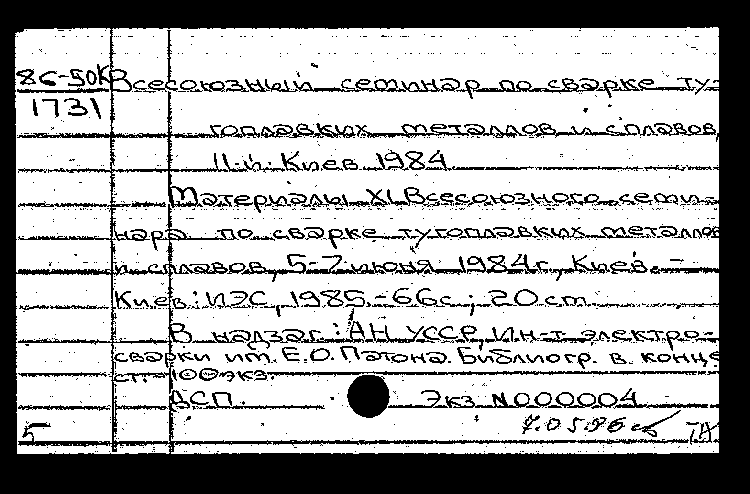 86-50к Всесоюзный семинар по сварке ту-
1731
гоплавких металлов и сплавов,
11-й. Киев. 1984
Материалы XI Всесоюзного семи-
нара по сварке тугоплавких металлов
и сплавов, 5-7 июня 1984г., Киев. -
Киев: ИЭС, 1985. - 66с.; 20см
В надзаг.: АН УССР, Ин-т электро-
сварки им. Е.О. Патона. Библиогр. в конце
ст. - 100экз.
ДСП. Экз. N000004
5